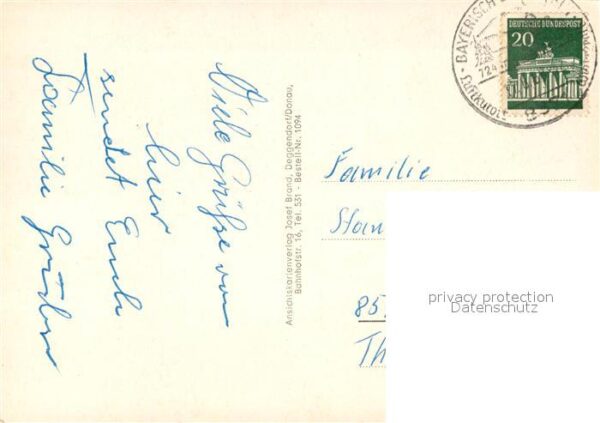 Viele Grüße von
hier
sendet Euch
Familie
Ansichtskartenverlag Josef Brand, Deggendorf/Donau,
Bahnhofstr. 16, Tel. 531 - Bestell-Nr. 1094
BAYERISCH
Luftkurort
DEUTSCHE BUNDESPOST
20
Familie
Han
85
Th
privacy protection
Datenschutz